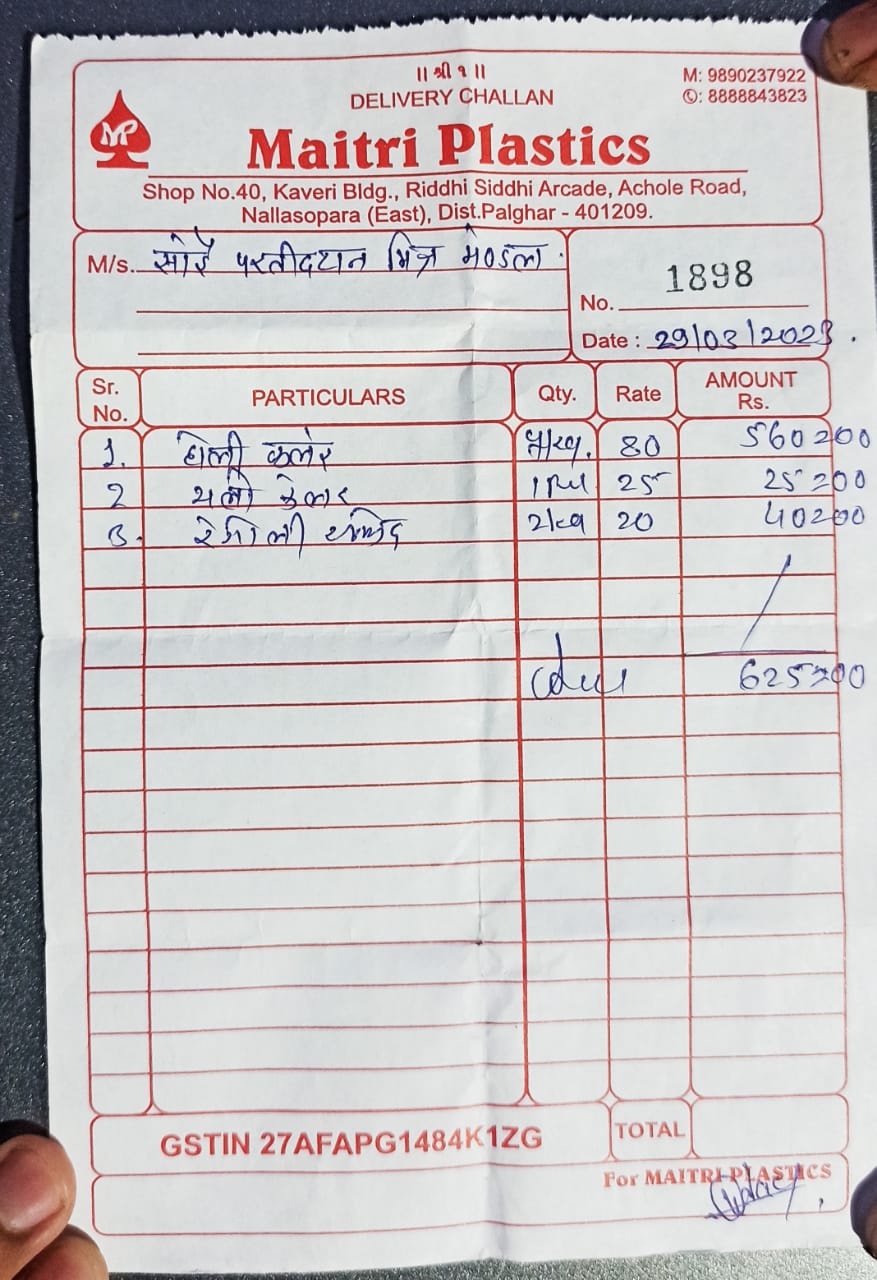 ॥ श्री १ ॥
DELIVERY CHALLAN
M: 9890237922
✆: 8888843823
MP
Maitri Plastics
Shop No.40, Kaveri Bldg., Riddhi Siddhi Arcade, Achole Road,
Nallasopara (East), Dist.Palghar - 401209.
M/s. मित्र
No. 1898
Date : 29/03/2023.
Sr. No. PARTICULARS Qty. Rate AMOUNT Rs.
1. होली कलर 80 560=00
2 25 25=00
3. रंगोली 2kg 20 40=00
625=00
GSTIN 27AFAPG1484K1ZG TOTAL
For MAITRI PLASTICS